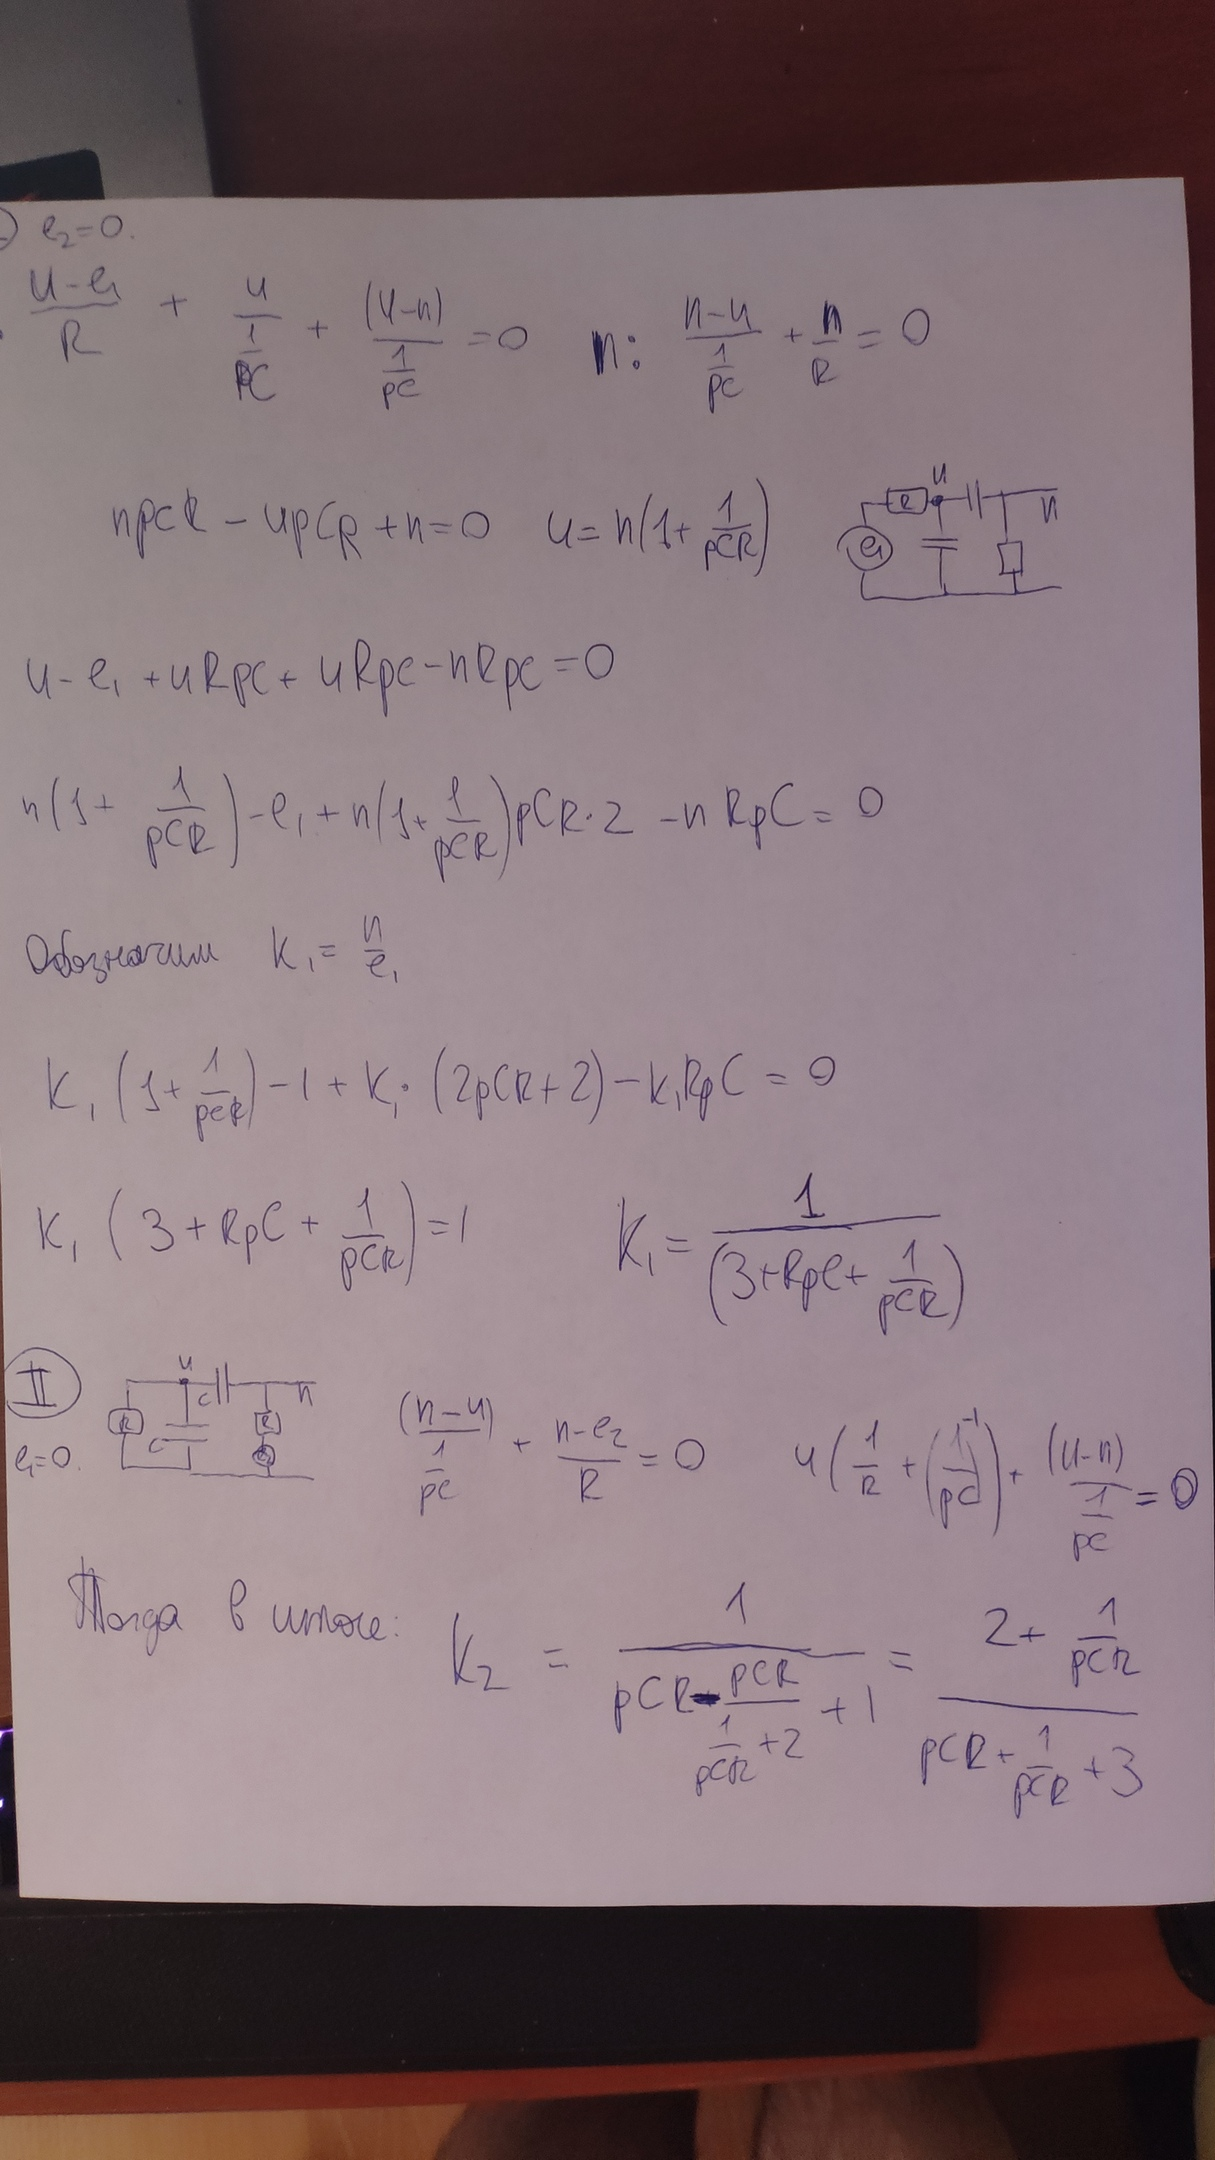 e₂=0.
(u-e₁)/R + u/(1/pC) + (u-n)/(1/pC) = 0   n: (n-u)/(1/pC) + n/R = 0
npCR - upCR + n = 0   u = n(1 + 1/(pCR))
R u n
e₁
u - e₁ + uRpC + uRpC - nRpC = 0
n(1 + 1/(pCR)) - e₁ + n(1 + 1/(pCR))pCR·2 - nRpC = 0
Обозначим K₁ = n/e₁
K₁(1 + 1/(pCR)) - 1 + K₁·(2pCR + 2) - K₁RpC = 0
K₁(3 + RpC + 1/(pCR)) = 1   K₁ = 1/(3 + RpC + 1/(pCR))
II
e₁=0.
u C n
R C R
(n-u)/(1/pC) + (n-e₂)/R = 0   u(1/R + (1/pC)⁻¹) + (u-n)/(1/pC) = 0
Тогда в итоге: K₂ = 1/(pCR - pCR/(1/(pCR) + 2) + 1) = (2 + 1/(pCR))/(pCR + 1/(pCR) + 3)